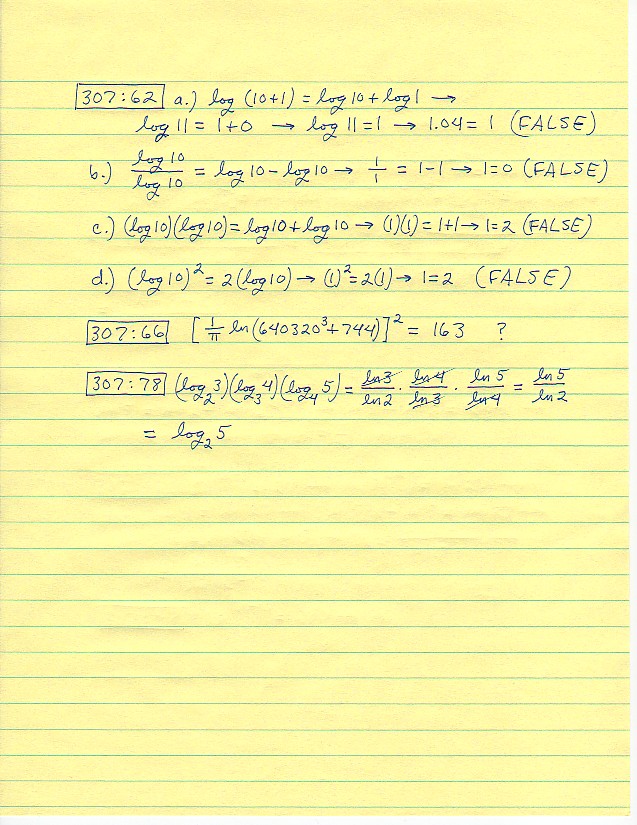 307:62 a.) log (10+1) = log 10 + log 1 →
log 11 = 1+0 → log 11 = 1 → 1.04 = 1 (FALSE)
b.) log 10 / log 10 = log 10 - log 10 → 1/1 = 1-1 → 1=0 (FALSE)
c.) (log 10)(log 10) = log 10 + log 10 → (1)(1) = 1+1 → 1=2 (FALSE)
d.) (log 10)² = 2(log 10) → (1)² = 2(1) → 1=2 (FALSE)
307:66 [1/π ln(640320³+744)]² = 163 ?
307:78 (log₂3)(log₃4)(log₄5) = ln3/ln2 · ln4/ln3 · ln5/ln4 = ln5/ln2
= log₂5